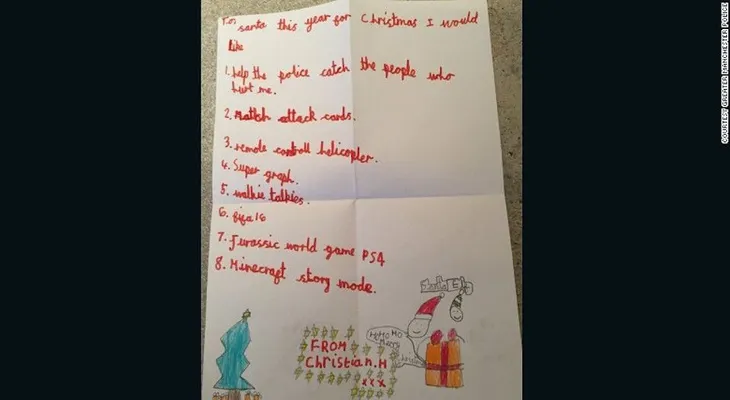 To,
santa this year for Christmas I would
like
1. help the police catch the people who
hurt me.
2. Match attack cards.
3. remote controll helicopter.
4. Super graph.
5. walkie talkies.
6. fifa 16
7. Jurassic world game PS4
8. Minecraft story mode.
Santa
Ho Ho Ho
Merry
FROM
Christian.H
xxx
COURTESY GREATER MANCHESTER POLICE